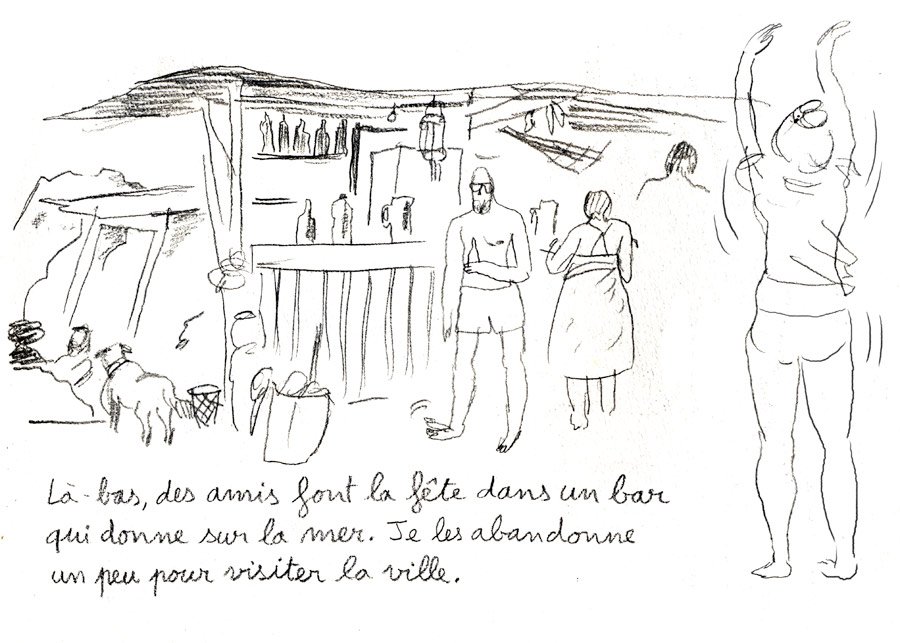 Là-bas, des amis font la fête dans un bar
qui donne sur la mer. Je les abandonne
un peu pour visiter la ville.